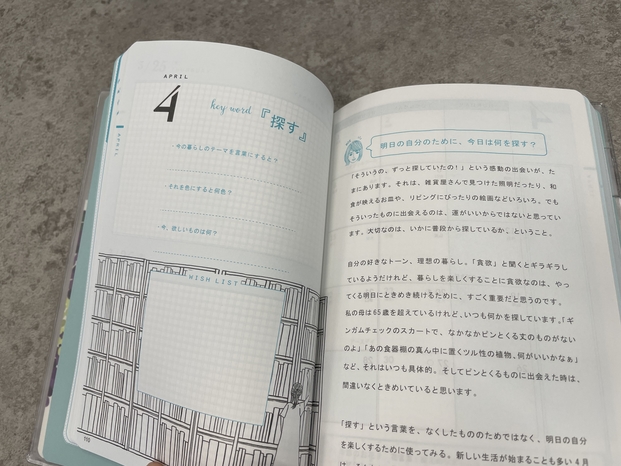 APRIL
4
key word 『探す』
・今の暮らしのテーマを言葉にすると？
・それを色にすると何色？
・今、欲しいものは何？
WISH LIST
110
明日の自分のために、今日は何を探す？
「そういうの、ずっと探していたの！」という感動の出会いが、た
まにあります。それは、雑貨屋さんで見つけた照明だったり、和
食が映えるお皿や、リビングにぴったりの絵画などいろいろ。でも
そういったものに出会えるのは、運がいいからではないと思ってい
ます。大切なのは、いかに普段から探しているか、ということ。
自分の好きなトーン、理想の暮らし。「貪欲」と聞くとギラギラし
ているようだけれど、暮らしを楽しくすることに貪欲なのは、やっ
てくる明日にときめき続けるために、すごく重要だと思うのです。
私の母は65歳を超えているけれど、いつも何かを探しています。「ギ
ンガムチェックのスカートで、なかなかピンとくる丈のものがない
のよ」「あの食器棚の真ん中に置くツル性の植物、何がいいかなぁ」
など、それはいつも具体的。そしてピンとくるものに出会えた時は、
間違いなくときめいていると思います。
「探す」という言葉を、なくしたもののためではなく、明日の自分
を楽しくするために使ってみる。新しい生活が始まることも多い4月